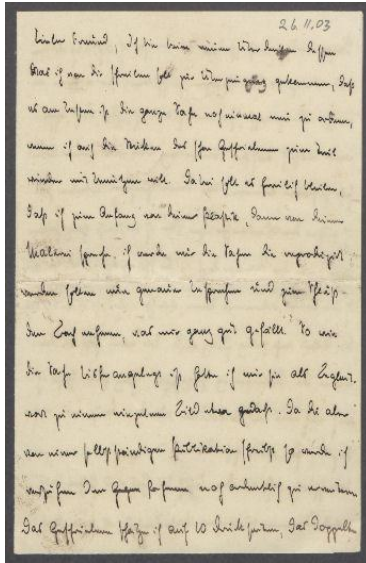 26.11.03
Lieber Freund, Ich bin beim
was ich von dir schreiben soll zur Überzeugung gekommen, daß
es am besten ist die ganze Sache noch einmal neu zu ordnen,
wenn ich auch die des schon Geschriebenen zum Teil
wieder mit benützen will. Dabei soll es freilich bleiben,
daß ich zum Anfang von deiner Plastik, dann von deiner
Malerei spreche. ich werde mir die Sachen die reproduziert
werden sollen genauer besprechen und zum Schluß
den nehmen, was mir ganz gut gefällt. So wie
die Sache bisher angelegt ist hatte ich mir sie als Begleit-
wort zu einem einzelnen Bild gedacht. Da du aber
von einer selbstständigen Publikation schreibst so werde ich
den noch ordentlich zu erweitern
Das Geschriebene schätze ich auf 10 Druckseiten, das Doppelte